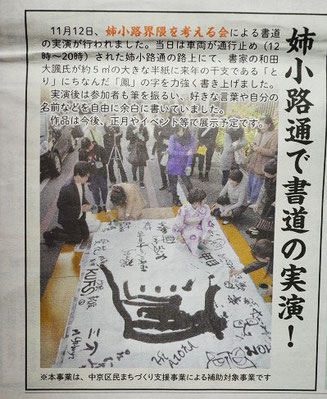 姉小路通で書道の実演！
11月12日、姉小路界隈を考える会による書道
の実演が行われました。当日は車両が通行止め（12
時～20時）された姉小路通の路上にて、書家の和田
大諷氏が約5㎡の大きな半紙に来年の干支である「と
り」にちなんだ「鳳」の字を力強く書き上げました。
実演後は参加者も筆を振るい、好きな言葉や自分の
名前などを自由に余白に書いていました。
作品は今後、正月やイベント等で展示予定です。
KURO
※本事業は、中京区民まちづくり支援事業による補助対象事業です